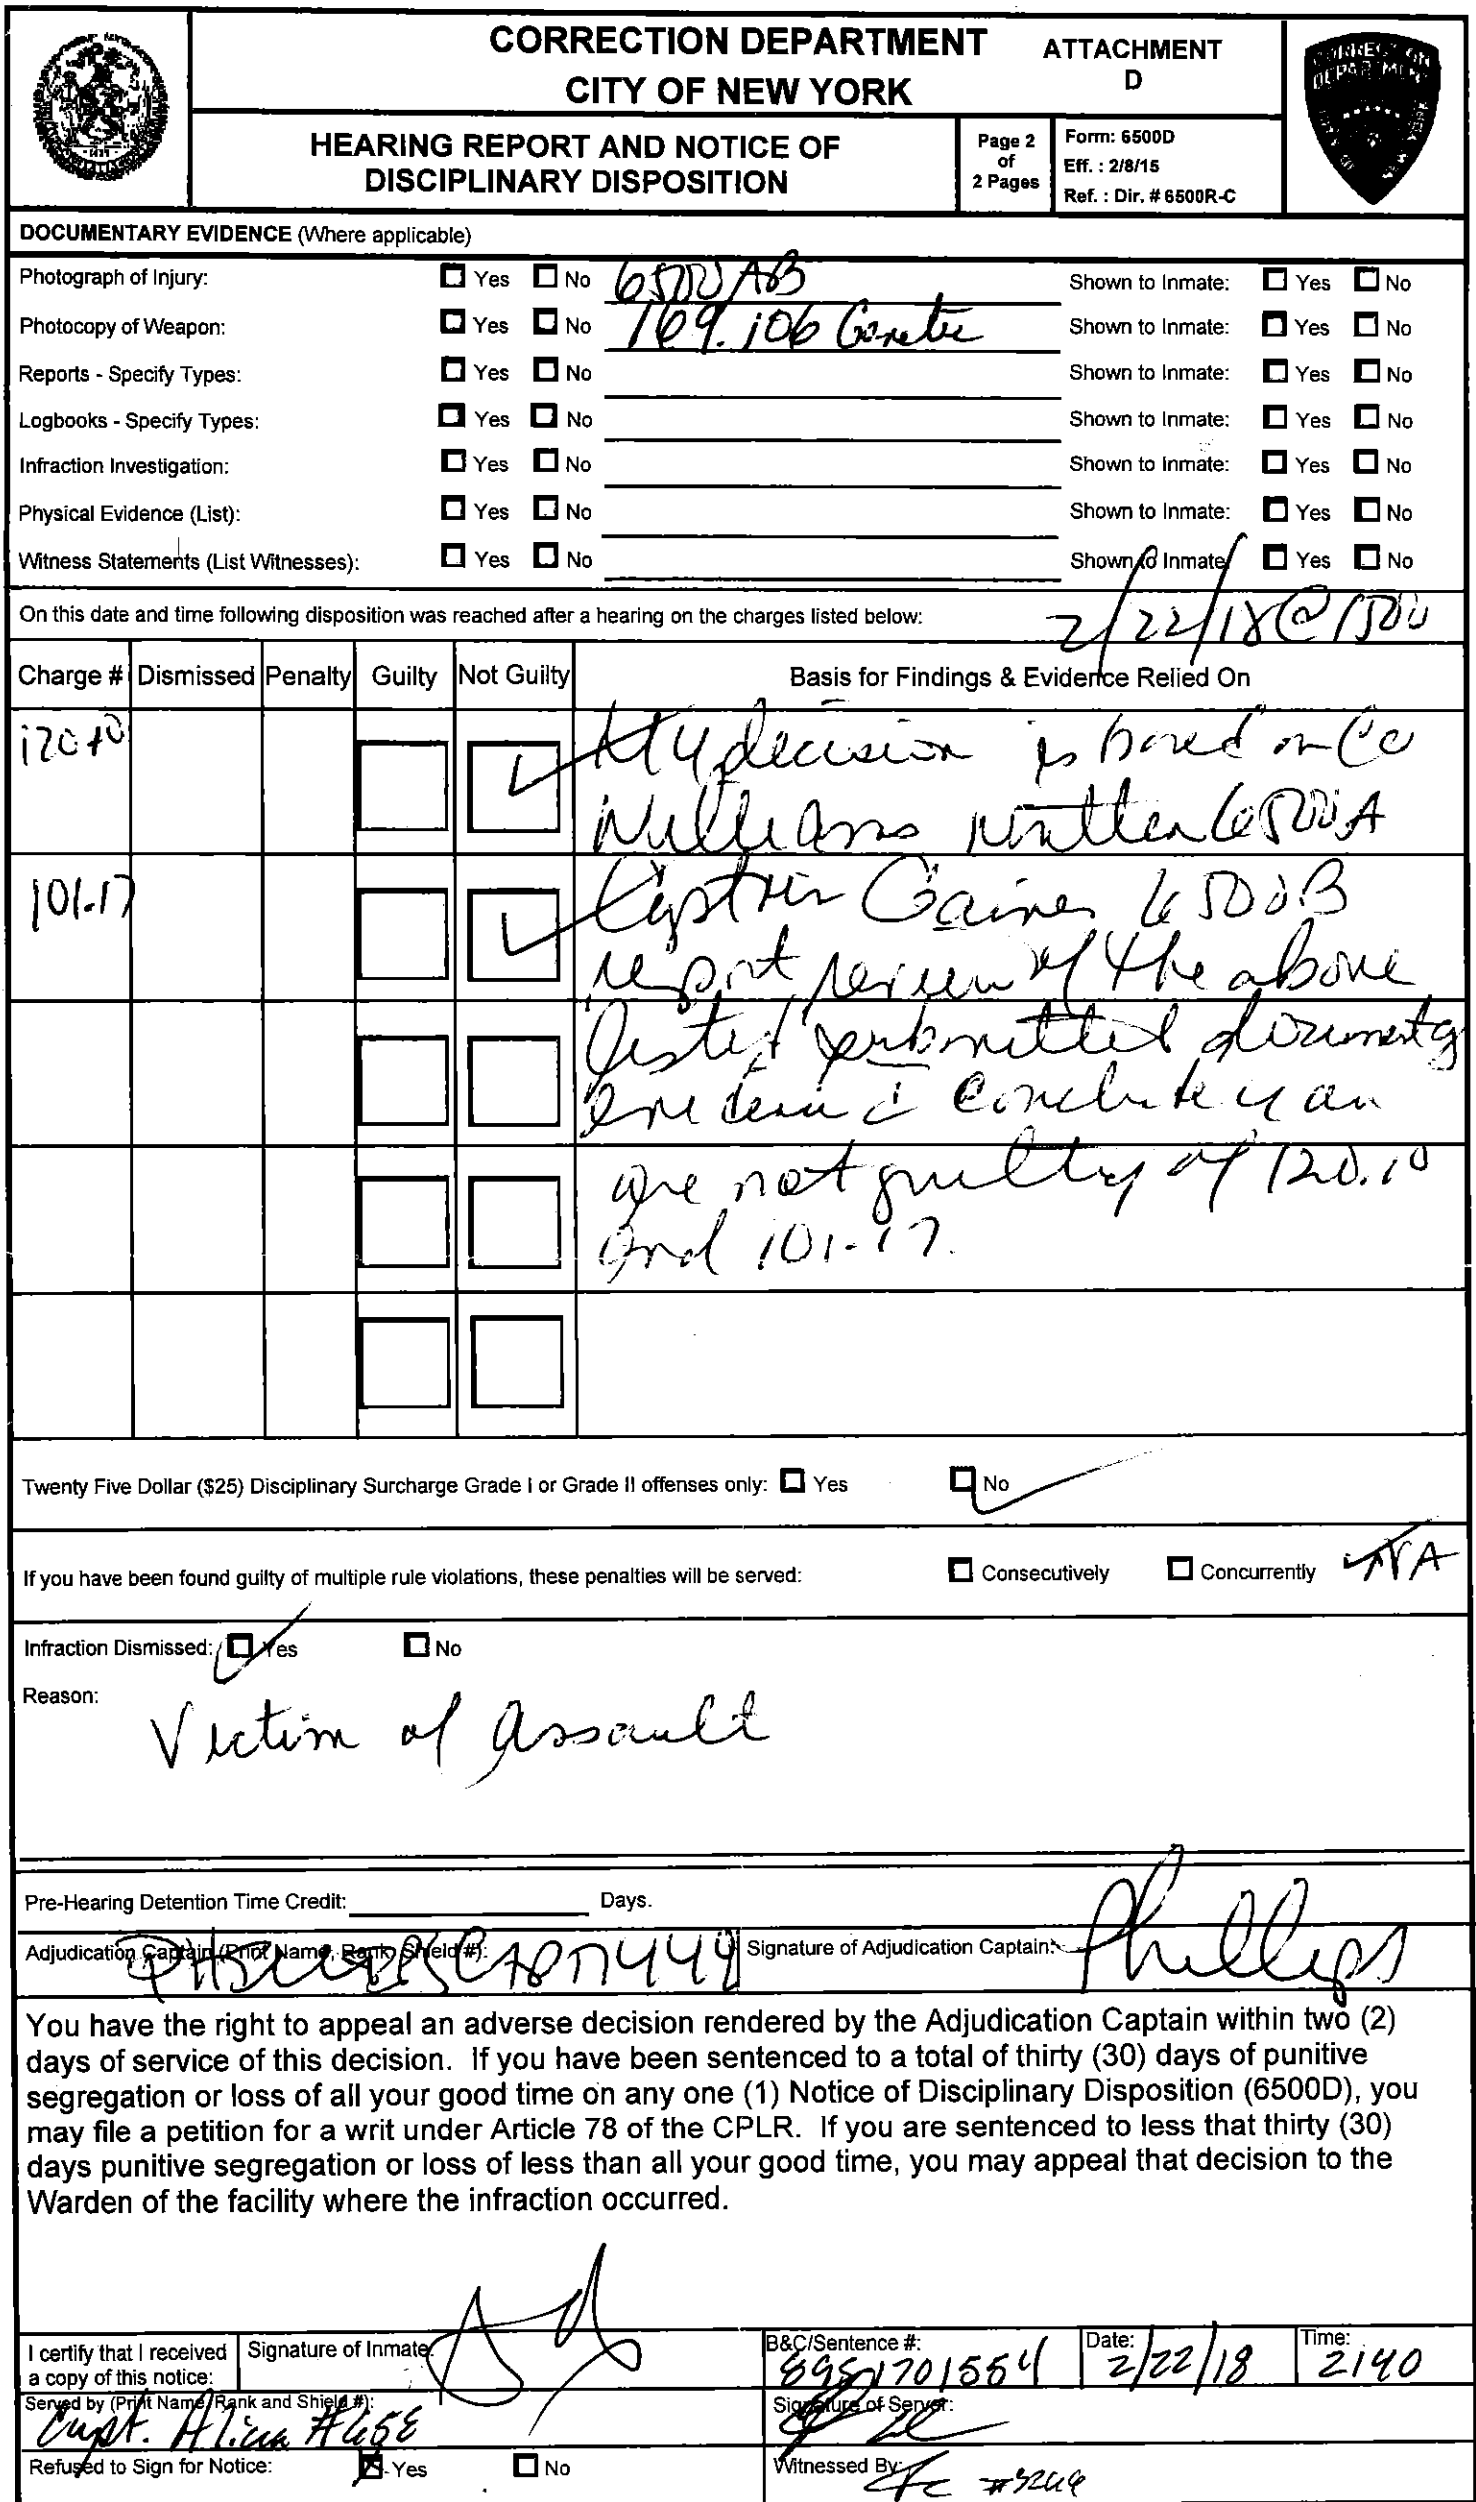 CORRECTION DEPARTMENT
CITY OF NEW YORK
ATTACHMENT
D
HEARING REPORT AND NOTICE OF
DISCIPLINARY DISPOSITION
Page 2
of
2 Pages
Form: 6500D
Eff. : 2/8/15
Ref. : Dir. # 6500R-C
DOCUMENTARY EVIDENCE (Where applicable)
Photograph of Injury: Yes No 6500 AB Shown to Inmate: Yes No
Photocopy of Weapon: Yes No Shown to Inmate: Yes No
Reports - Specify Types: Yes No Shown to Inmate: Yes No
Logbooks - Specify Types: Yes No Shown to Inmate: Yes No
Infraction Investigation: Yes No Shown to Inmate: Yes No
Physical Evidence (List): Yes No Shown to Inmate: Yes No
Witness Statements (List Witnesses): Yes No Shown to Inmate Yes No
On this date and time following disposition was reached after a hearing on the charges listed below: 2/22/18 @ 1500
Charge # Dismissed Penalty Guilty Not Guilty Basis for Findings & Evidence Relied On
120.10 My decision is based on Co
Williams written 6500A
101.17 Captain Gaines 6500B
report review of the above
listed submitted
conclude
are not guilty of 120.10
and 101.17.
Twenty Five Dollar ($25) Disciplinary Surcharge Grade I or Grade II offenses only: Yes No
If you have been found guilty of multiple rule violations, these penalties will be served: Consecutively Concurrently N/A
Infraction Dismissed: Yes No
Reason:
Victim of assault
Pre-Hearing Detention Time Credit: Days.
Adjudication Captain (Print Name, Rank, Shield #): Signature of Adjudication Captain: Phillips
You have the right to appeal an adverse decision rendered by the Adjudication Captain within two (2)
days of service of this decision. If you have been sentenced to a total of thirty (30) days of punitive
segregation or loss of all your good time on any one (1) Notice of Disciplinary Disposition (6500D), you
may file a petition for a writ under Article 78 of the CPLR. If you are sentenced to less that thirty (30)
days punitive segregation or loss of less than all your good time, you may appeal that decision to the
Warden of the facility where the infraction occurred.
I certify that I received
a copy of this notice:
Signature of Inmate
B&C/Sentence #:
8951701554
Date:
2/22/18
Time:
2140
Served by (Print Name/Rank and Shield #):
Capt. Alicea
Signature of Server:
Refused to Sign for Notice: Yes No
Witnessed By: